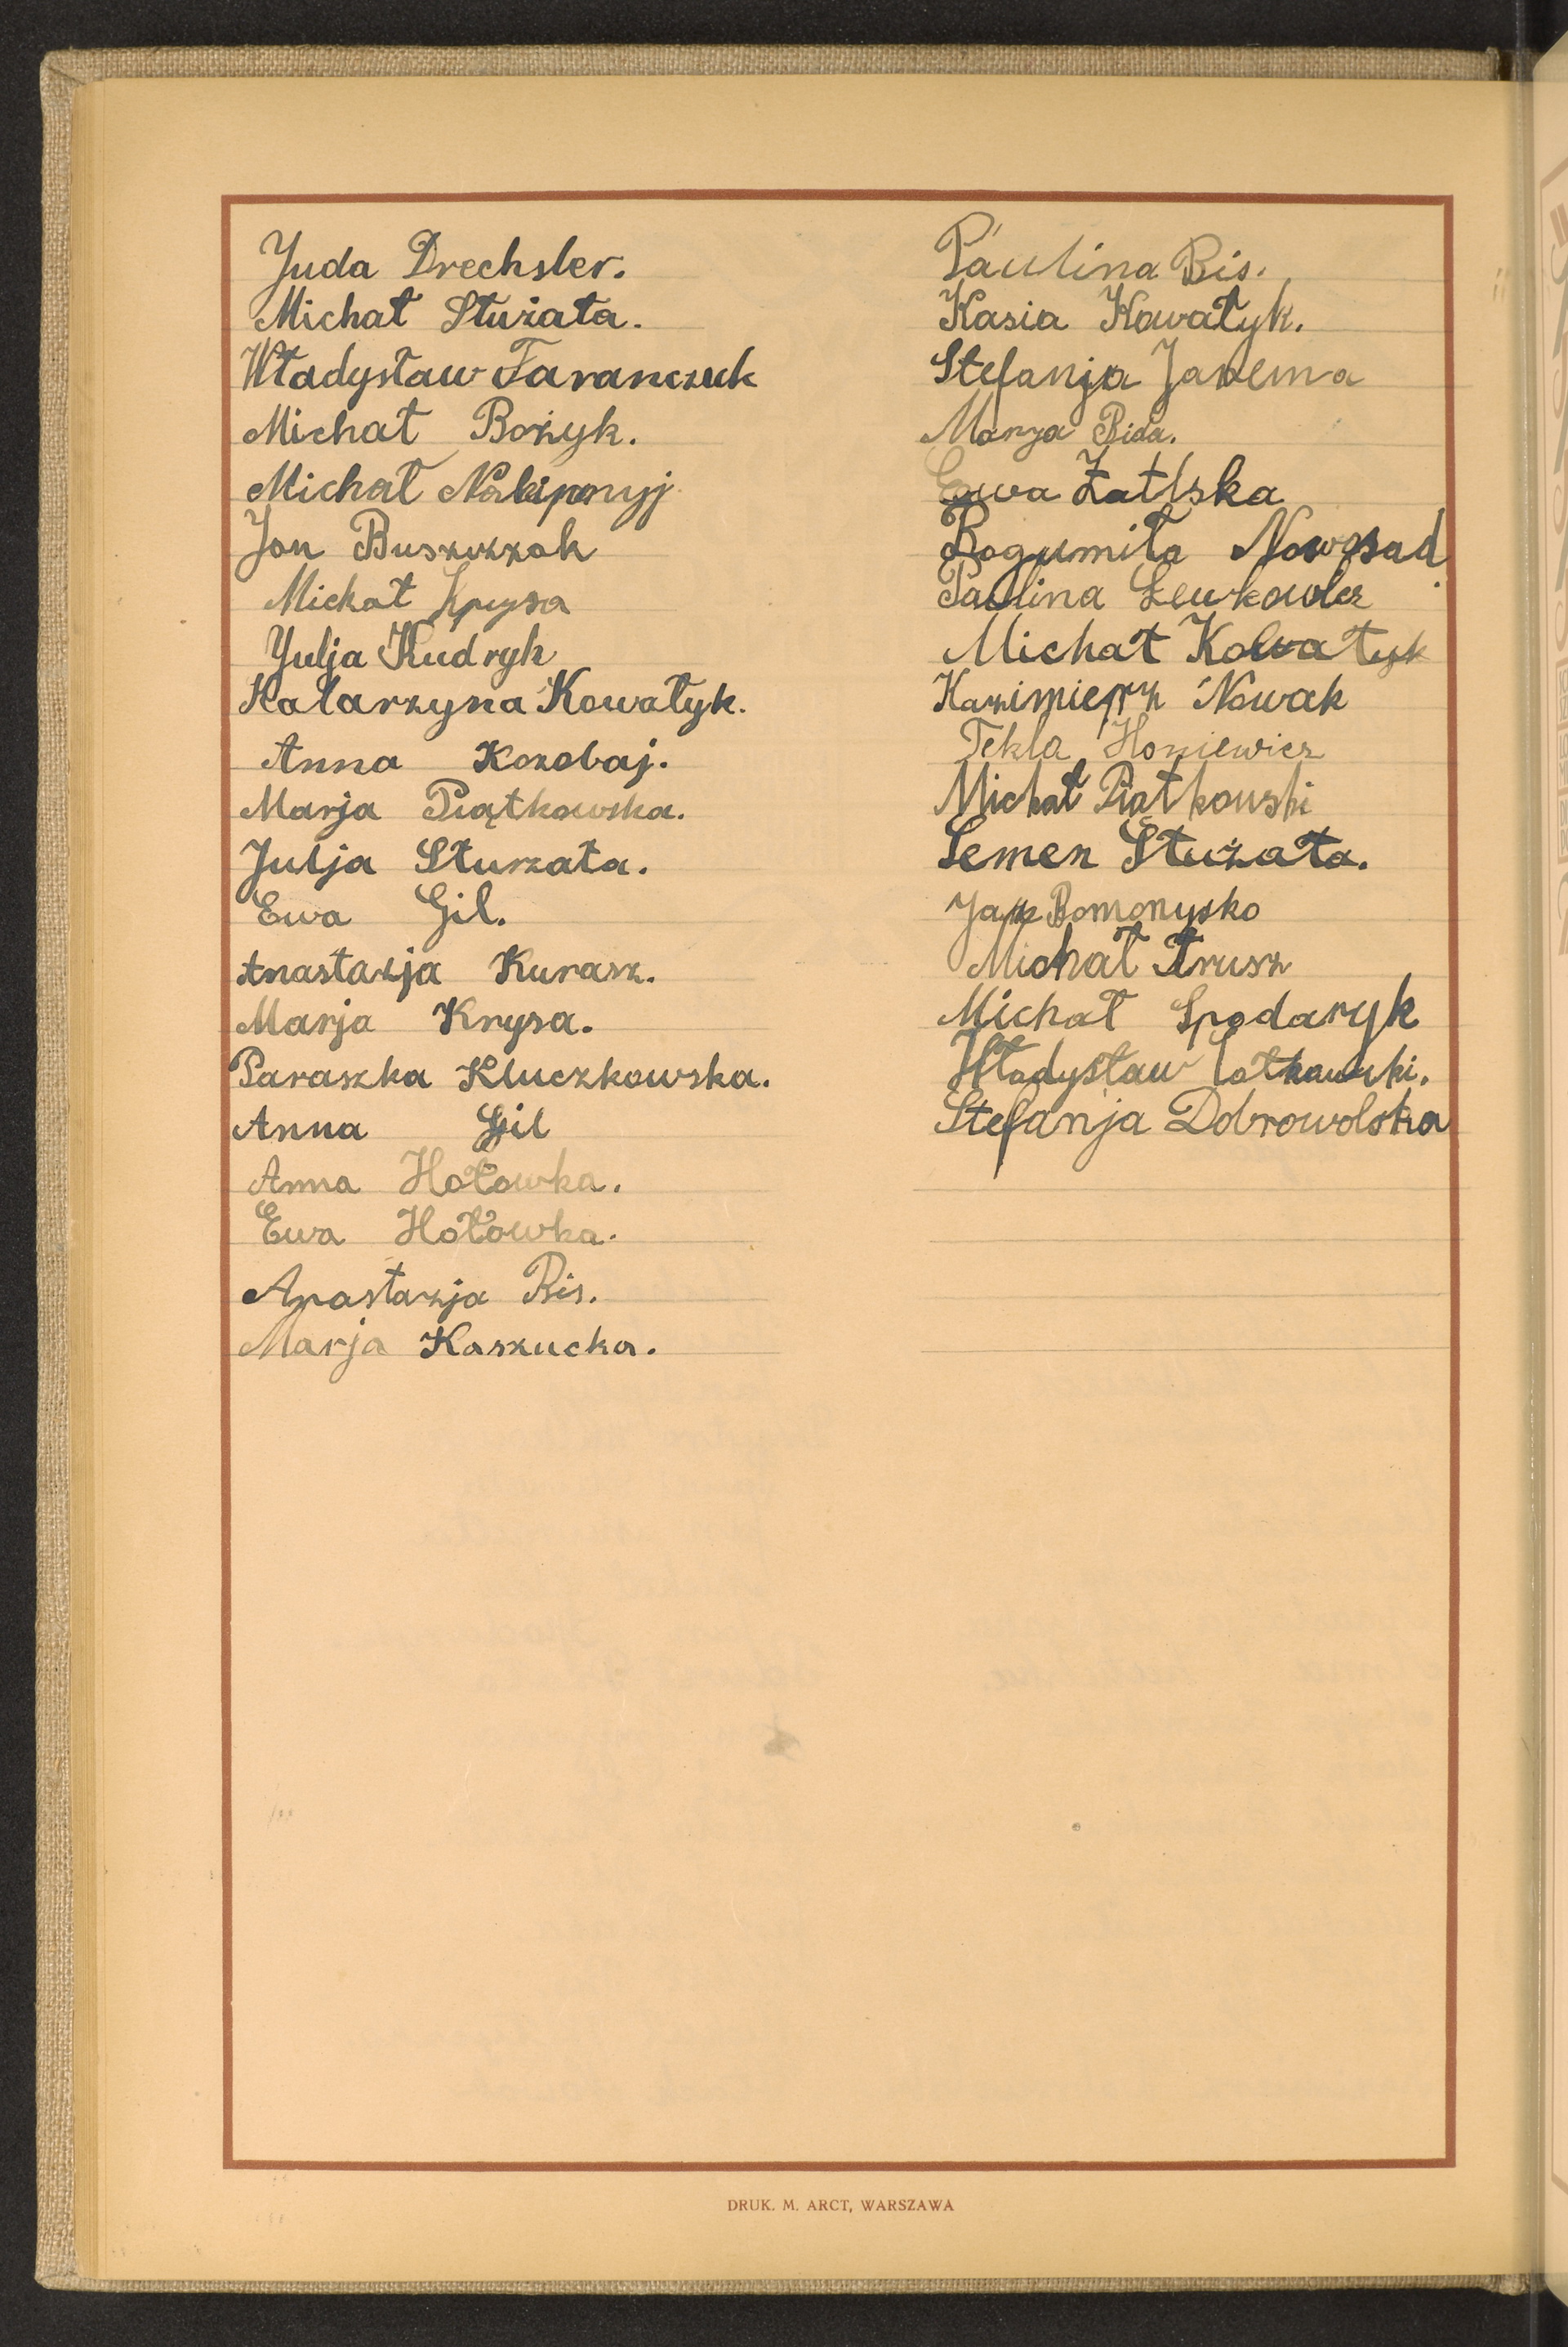 Juda Drechsler.
Michał Stużała.
Władysław Taranczuk
Michał Bożyk.
Michał
Jan
Michał Krysa
Julja Kudryk
Katarzyna Kowałyk.
Anna Kozobaj.
Marja Piątkowska.
Julja Sturzała.
Ewa Gil.
Anastazja Kurasz.
Marja Krysa.
Paraszka Kluczkowska.
Anna Gil
Anna Hołowka.
Ewa Hołowka.
Anastazja Bis.
Marja Kaszucka.
Paulina Bis.
Kasia Kowałyk.
Stefanja Jarema
Marya Bida.
Ewa
Bogumiła Nowosad
Paulina
Michał Kowałyk
Kazimierz Nowak
Tekla Honiewicz
Michał Piątkowski
Semen Stużała.
Michał Trusz
Michał Spodaryk
Władysław
Stefanja Dobrowolska
DRUK. M. ARCT, WARSZAWA